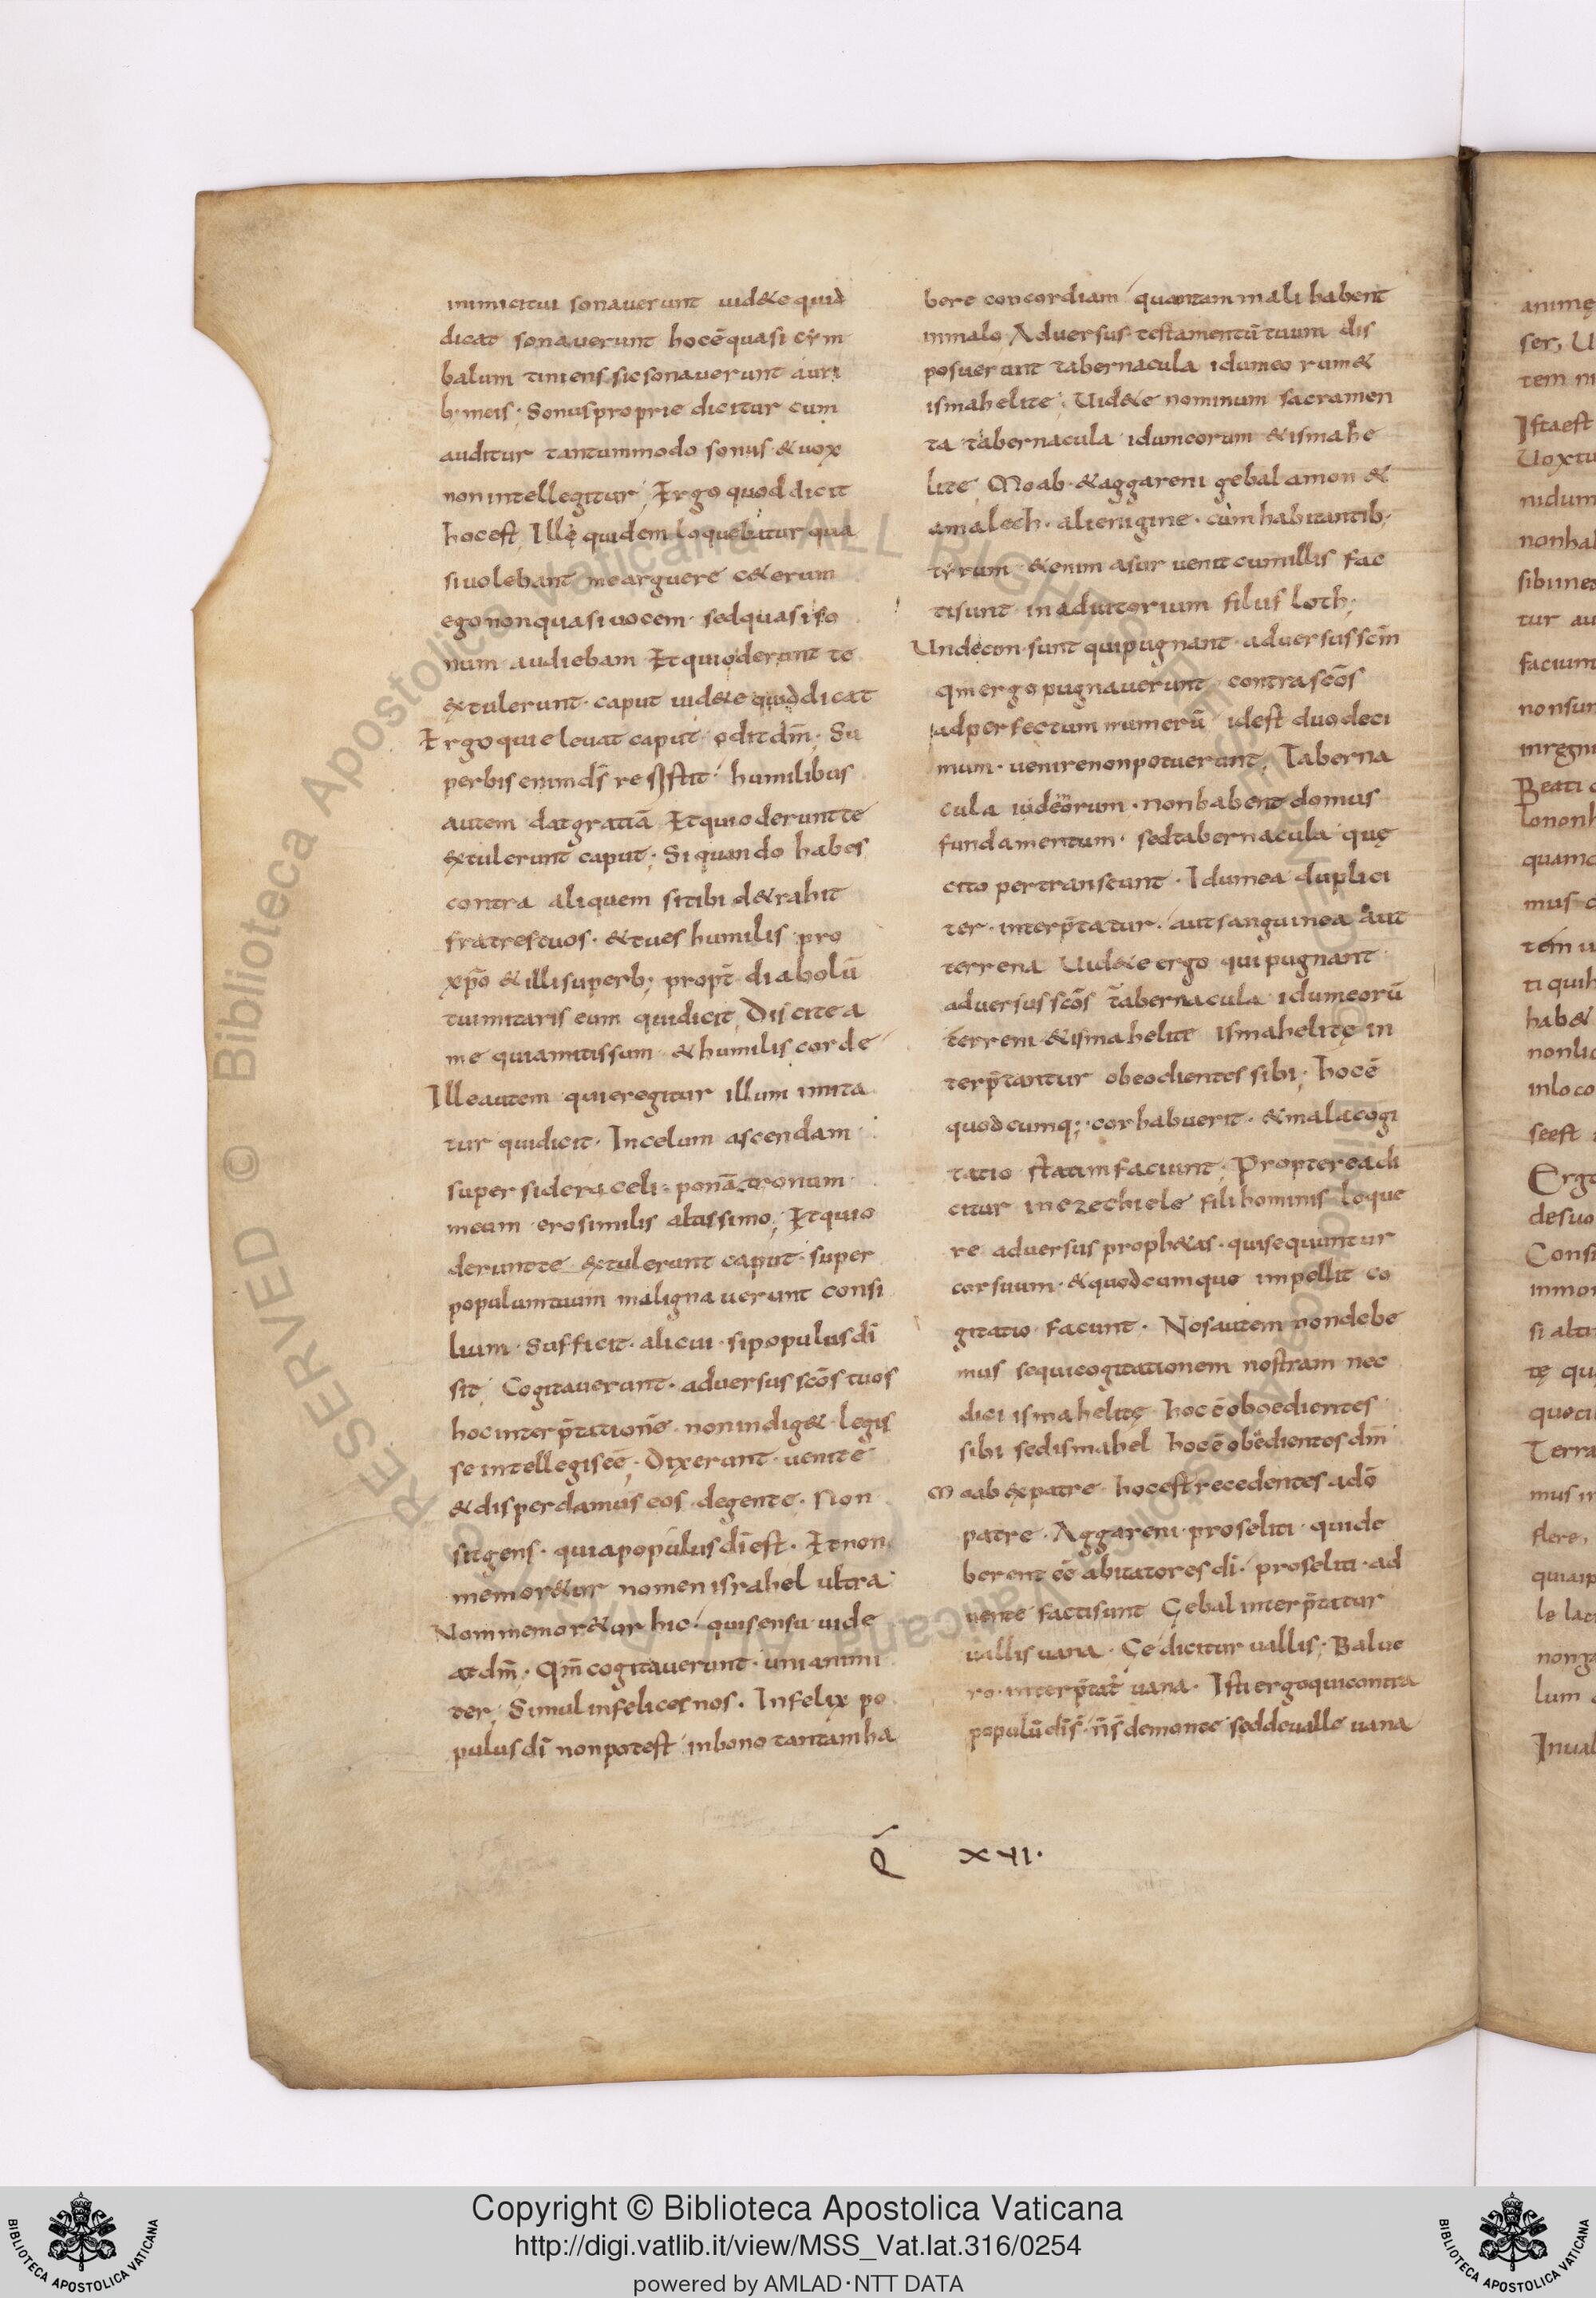 inimicitui sonauerunt uid&e quid
dicat sonauerunt hocē quasi cym
balum tiniens sic sonauerunt auri
b; meis; Sonus proprie dicitur cum
auditur tantummodo sonus & uox
non intellegitur; Ergo quod dicit
hocest, Ille quidem loquebatur qua
si uolebant me arguere c&erum
ego non quasi uocem sed quasi so
num audiebam Et qui oderunt te
extulerunt caput uid&e quid dicat
Ergo qui eleuat caput odit dm̄. Su
perbis enim ds̄ resistit humilibus
autem dat gratiā Et qui oderunt te
extulerunt caput; Si quando habes
contra aliquem si tibi d&rahit
fratres tuos. & tu es humilis pro
xpō & illi superb; propt̄ diabolū
tu imitaris eum qui dicit, Discite a
me quia mitis sum & humilis corde
Ille autem qui erigitur illum imita
tur qui dicit. In celum ascendam
super sidera celi ponā tronum
meum ero similis altissimo; Et qui o
derunt te extulerunt caput super
populum tuum malignauerunt consi
lium. Sufficit alicui si populus dī
sit; Cogitauerunt aduersus scōs tuos
hoc interp̄tationē non indig& legis
se intellegis eē; Dixerunt uenite
& disperdamus eos de gente. Non
sit gens. quia populus dī est. Et non
memor&ur nomen israhel ultra
Non memor&ur hic qui sensu uide
at dm̄. Qm̄ cogitauerunt unanimi
ter; Simul infelices nos. Infelix po
pulus dī non potest in bono tantam ha
bere concordiam quantam mali habent
in malo Aduersus testamentū tuum dis
posuerunt tabernacula idumeorum &
ismahelite; Uid&e nominum sacramen
ta tabernacula idumeorum & ismahe
lite, Moab & aggareni gebal amon &
amalech. alienigine cum habitantib;
tyrum &enim asur uenit cum illis fac
ti sunt in adiutorium filiis loth;
Undecim sunt qui pugnant aduersus scm̄
qm̄ ergo pugnauerunt contra scōs
ad perfectum numerū idest duodeci
mum uenire non potuerunt; Taberna
cula iudeorum non habent domus
fundamentum sed tabernacula quę
cito pertranseunt. Idumea duplici
ter interp̄tatur. aut sanguinea aut
terrena Uid&e ergo qui pugnant
aduersus scōs tabernacula idumeorū
terreni & ismahelite ismahelitę in
terp̄tantur oboedientes sibi; hocē
quodcumq; cor habuerit & mala cogi
tatio statim faciunt; Propterea di
citur in ezechiele fili hominis loque
re aduersus proph&as qui sequuntur
cor suum & quodcumque impellit co
gitatio faciunt. Nos autem non debe
mus sequi cogitationem nostram nec
dici ismahelitę hocē oboedientes
sibi sed ismahel hocē obędientes dm̄
Moab ex patre hocest recedentes a dō
patre. Aggareni proseliti qui de
berent eē abitatores dī proseliti ad
uenę facti sunt Gebal interp̄tatur
uallis uana. Ge dicitur uallis. Bal ue
ro interp̄tat̄ uana. Isti ergo qui contra
populū dī s̄ n̄ s̄ de monte sed de ualle uana
Q̄ XVI.
Copyright © Biblioteca Apostolica Vaticana
http://digi.vatlib.it/view/MSS_Vat.lat.316/0254
powered by AMLAD·NTT DATA